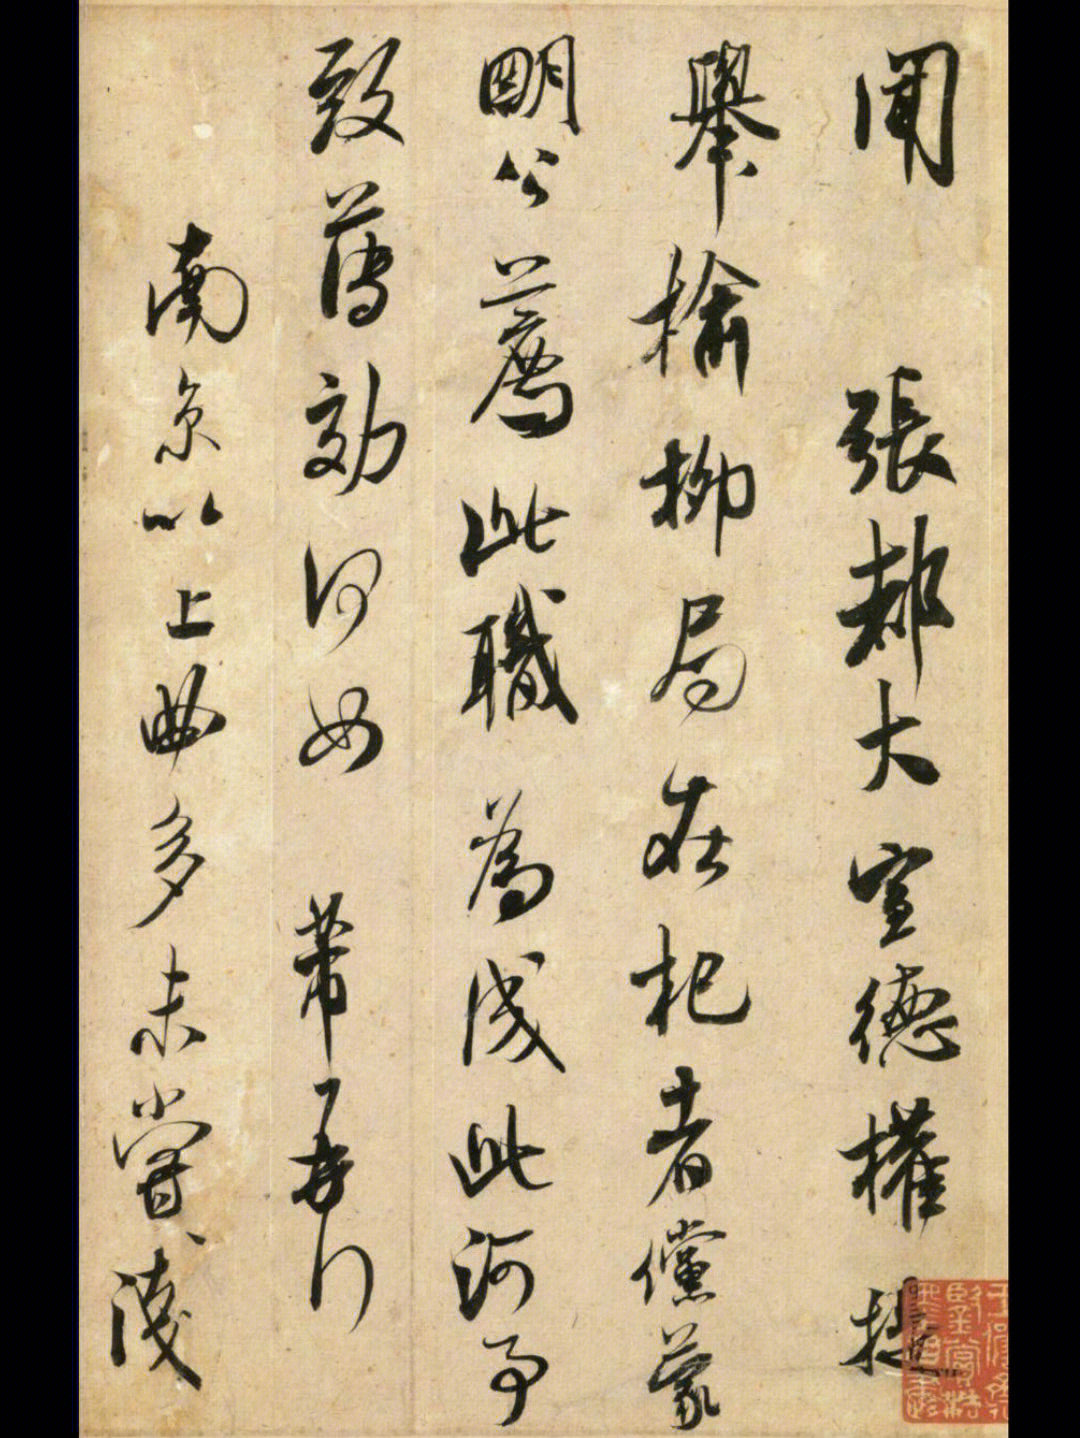 闻 張都大宣德權提
舉榆柳局在杞者儻蒙
明公薦此職為成此河事
致薄効何如 芾再行
南京以上曲多未嘗淺